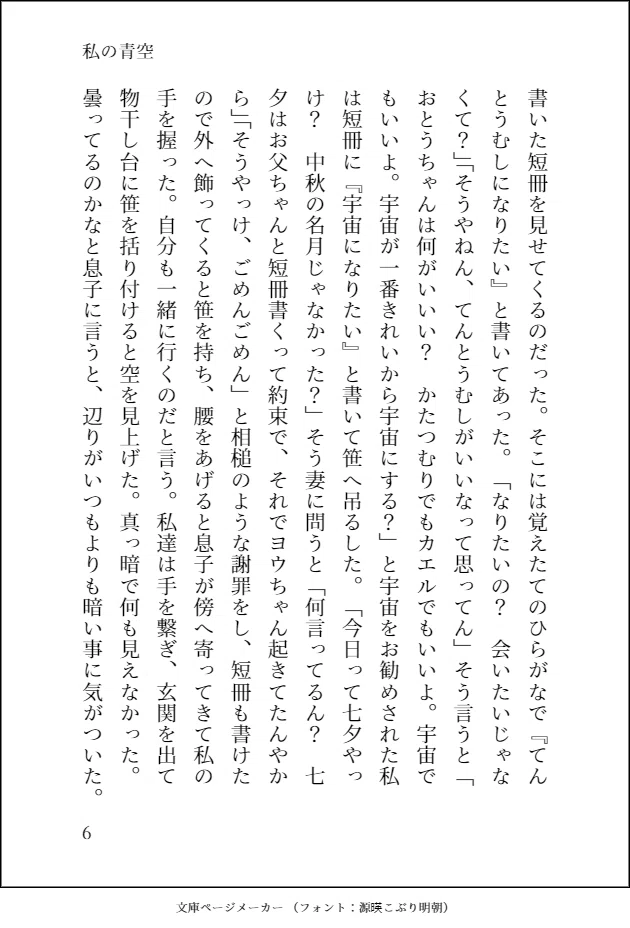 私の青空
書いた短冊を見せてくるのだった。そこには覚えたてのひらがなで『てん
とうむしになりたい』と書いてあった。「なりたいの？　会いたいじゃな
くて？」「そうやねん、てんとうむしがいいなって思ってん」そう言うと「
おとうちゃんは何がいい？　かたつむりでもカエルでもいいよ。宇宙で
もいいよ。宇宙が一番きれいから宇宙にする？」と宇宙をお勧めされた私
は短冊に『宇宙になりたい』と書いて笹へ吊るした。「今日って七夕やっ
け？　中秋の名月じゃなかった？」そう妻に問うと「何言ってるん？　七
夕はお父ちゃんと短冊書くって約束で、それでヨウちゃん起きてたんやか
ら」「そうやっけ、ごめんごめん」と相槌のような謝罪をし、短冊も書けた
ので外へ飾ってくると笹を持ち、腰をあげると息子が傍へ寄ってきて私の
手を握った。自分も一緒に行くのだと言う。私達は手を繋ぎ、玄関を出て
物干し台に笹を括り付けると空を見上げた。真っ暗で何も見えなかった。
曇ってるのかなと息子に言うと、辺りがいつもよりも暗い事に気がついた。
6
文庫ページメーカー（フォント：源暎こぶり明朝）